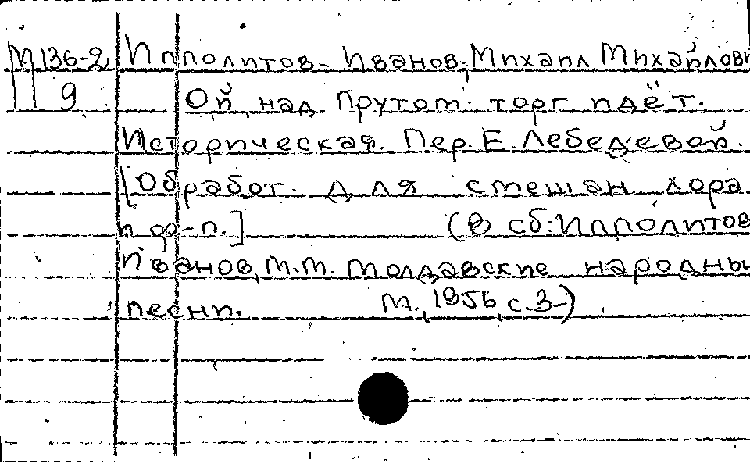 М136-2 Ипполитов-Иванов, Михаил Михайлови
9 Ой над Прутом торг идёт.
Историческая. Пер. Е. Лебедевой.
[Обработ. для смешан. хора
и ф-п.] (В сб: Ипполитов
Иванов, М.М. Молдавские народны
песни. М., 1956, с.3-)